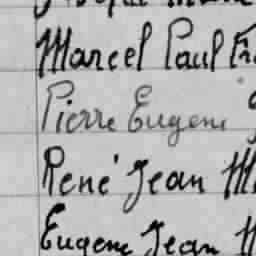 Marcel Paul
Pierre Eugene
René Jean
Eugene Jean